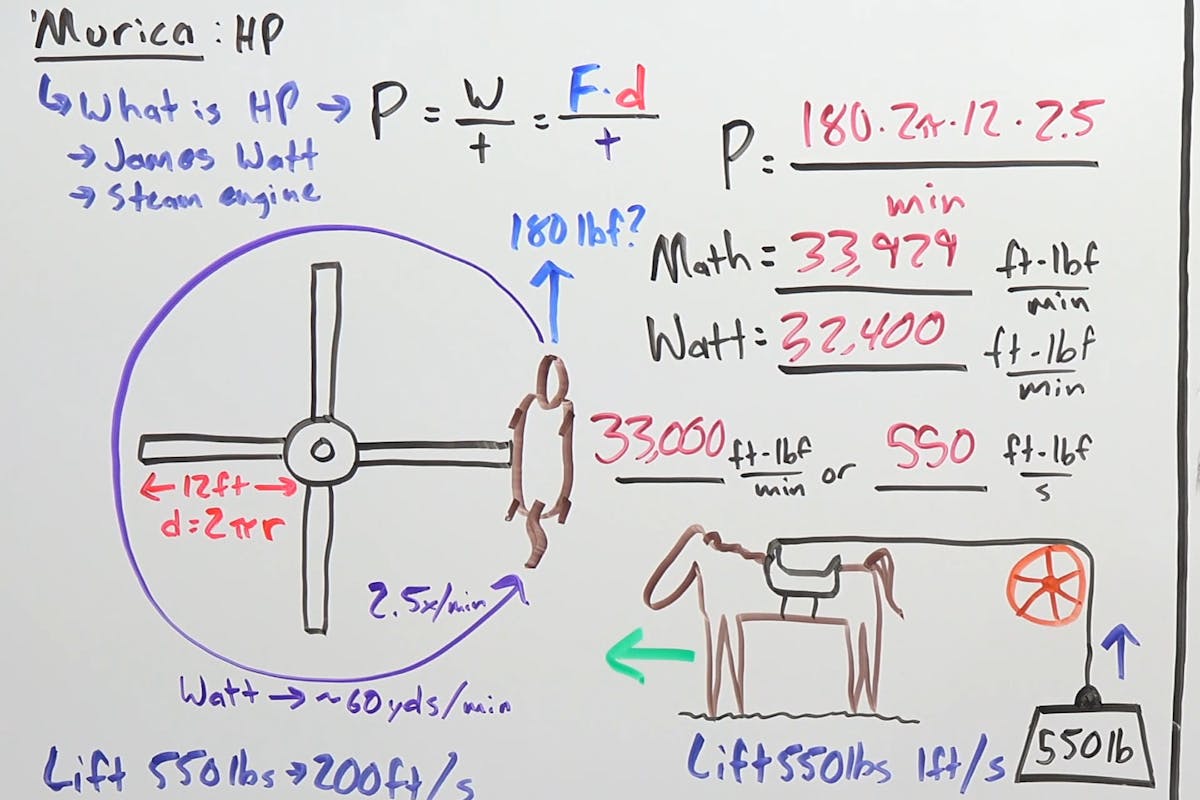 'Murica : HP
↳ What is HP → P = W/t = F·d/t
→ James Watt
→ Steam engine
P = 180·2π·12·2.5/min
180 lbf?
Math = 33,929 ft-lbf/min
Watt = 32,400 ft-lbf/min
33,000 ft-lbf/min or 550 ft-lbf/s
← 12ft →
d=2πr
2.5x/min
Watt → ~60yds/min
550lb
Lift 550lbs → 200ft/s
Lift 550lbs 1ft/s